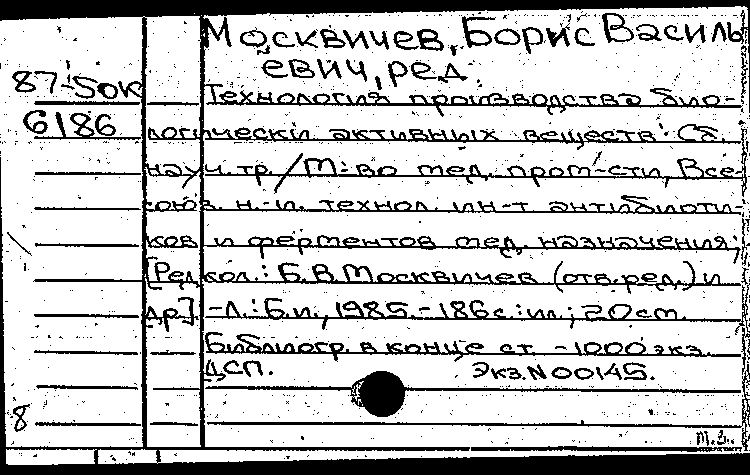 Москвичев, Борис Василь
евич, ред.
87-5ок
Технология производства био-
6186
логически активных веществ: Сб.
науч. тр. / М-во мед. пром-сти, Все-
союз. н.-и. технол. ин-т антибиоти-
ков и ферментов мед. назначения;
[Редкол.: Б.В. Москвичев (отв. ред.) и
др]. -Л.: Б.и., 1985. - 186 с.: ил.; 20 см.
Библиогр. в конце ст. - 1000 экз.
ДСП. Экз. N 00145.
8